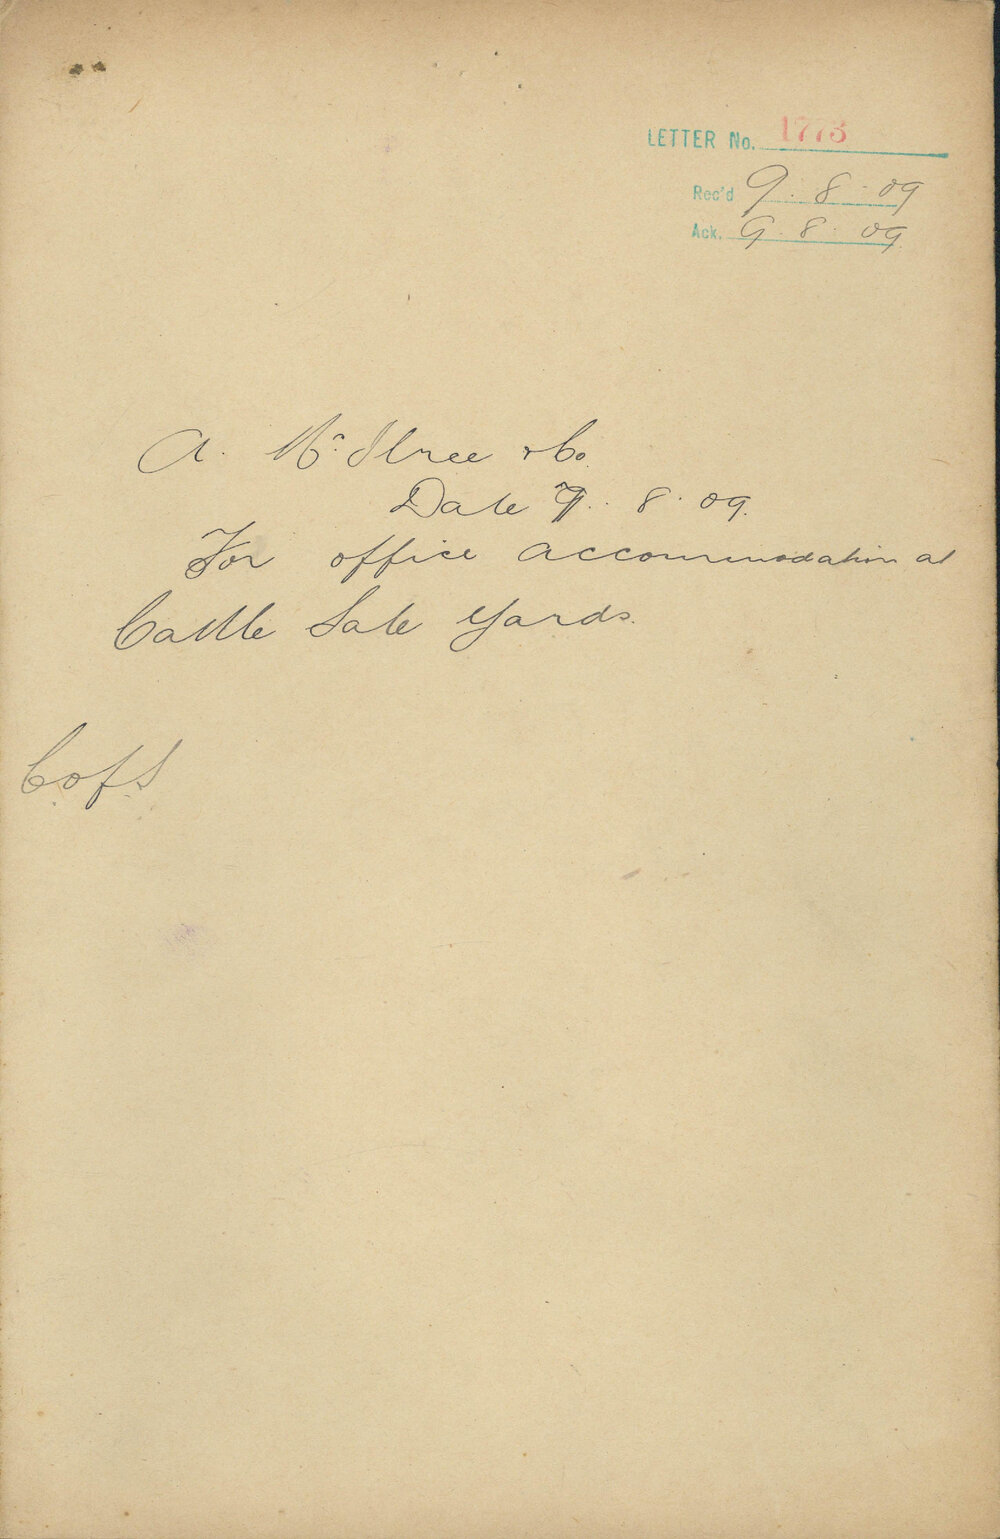 LETTER No. 1773
Rec'd 9. 8. 09
Ack. 9. 8. 09.
A. McIlree & Co.
Date 9. 8. 09.
For office accommodation at
Cattle Sale Yards.
C of S